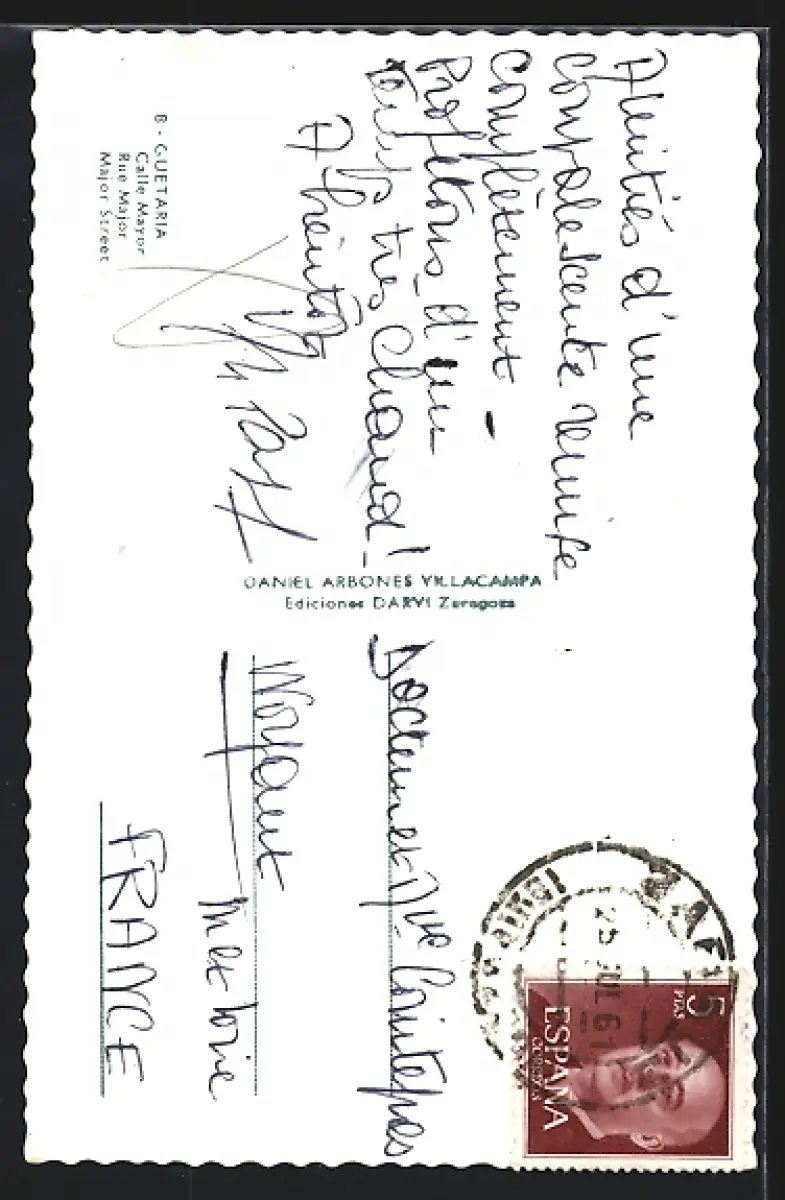 Amitiés d'une
convalescente remise
complètement -
Profitons d'un
temps très chaud!
A bientôt
B - GUETARIA
Calle Mayor
Rue Major
Major Street
DANIEL ARBONES VILLACAMPA
Ediciones DARVI Zaragoza
Docteur et Mme
Noyant
M et Loire
FRANCE
25 JUL 61
5
PTAS
ESPAÑA
CORREOS